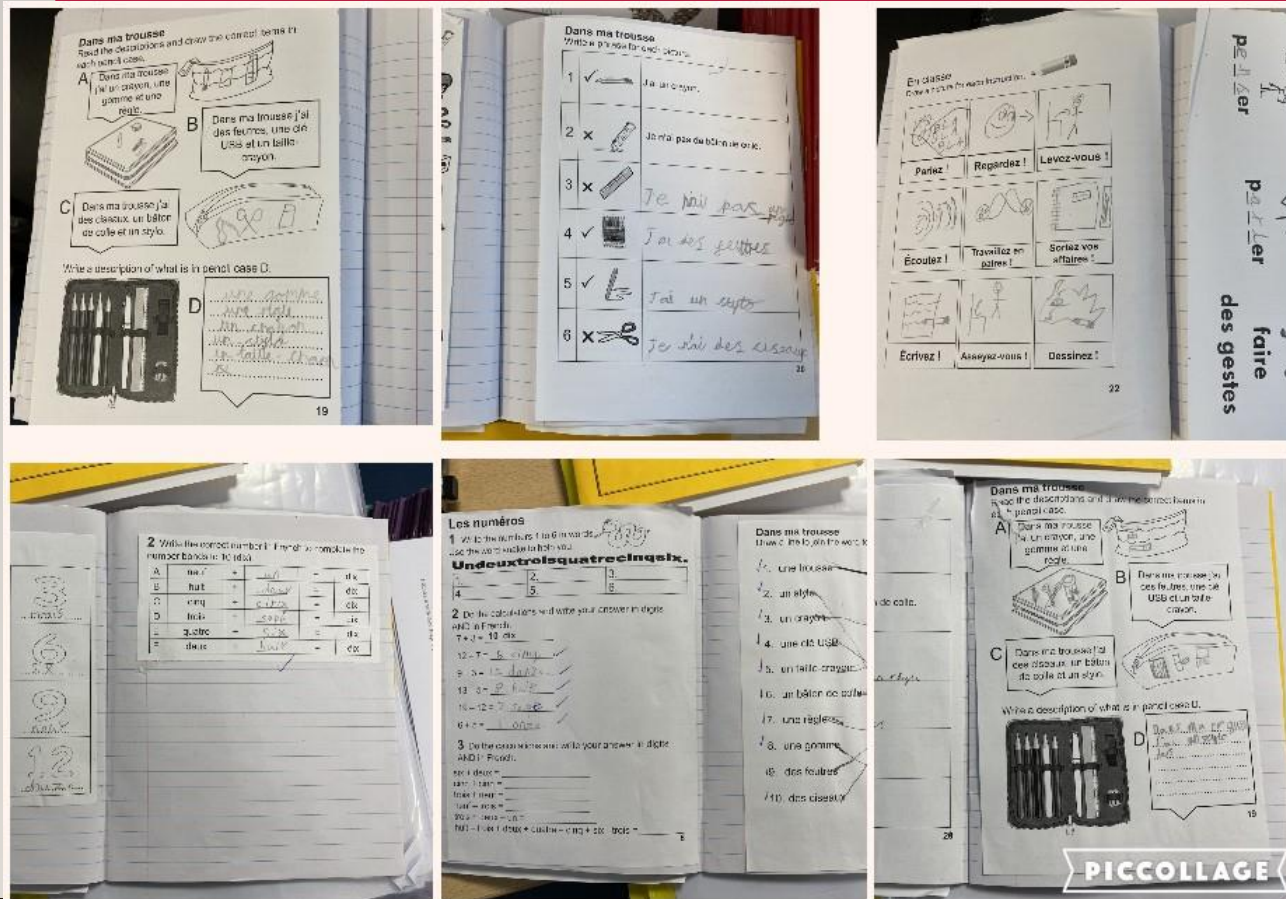 Dans ma trousse
Read the descriptions and draw the correct items in
each pencil case.
A
Dans ma trousse
j'ai un crayon, une
gomme et une
règle.
B
Dans ma trousse j'ai
des feutres, une clé
USB et un taille-
crayon.
C
Dans ma trousse j'ai
des ciseaux, un bâton
de colle et un stylo.
Write a description of what is in pencil case D.
D
une gomme
une règle
un crayon
un stylo
un taille
19
Dans ma trousse
Write a phrase for each picture.
1 J'ai un crayon.
2 Je n'ai pas de bâton de colle.
3 Je n'ai pas
4 J'ai des feutres
5 J'ai un stylo
6 Je n'ai des
En classe
Draw a picture for each instruction.
Parlez ! Regardez ! Levez-vous !
Écoutez ! Travaillez en paires ! Sortez vos affaires !
Écrivez ! Asseyez-vous ! Dessinez !
22
er
er
faire
des gestes
6
9
12
2 Write the correct number in French to complete the
number bonds to 10 (dix).
A neuf + un = dix
B huit + deux = dix
C cinq + cinq = dix
D trois + sept = dix
E quatre + six = dix
deux + huit = dix
Les numéros
1 Write the numbers 1 to 6 in words.
Use the word snake to help you.
Undeuxtroisquatrecinqsix.
1. 2. 3.
4. 5. 6.
2 Do the calculations and write your answer in digits
AND in French.
7 + 3 = 10 dix
3 Do the calculations and write your answer in digits
AND in French.
six + deux =
cinq + cinq =
6
Dans ma trousse
Draw a line to join the word to
1. une trousse
2. un stylo
3. un crayon
4. une clé USB
5. un taille-crayon
6. un bâton de colle
7. une règle
8. une gomme
9. des feutres
10. des ciseaux
de colle.
Dans ma trousse
Read the descriptions and draw the correct items in
each pencil case.
A
Dans ma trousse
j'ai un crayon, une
gomme et une
règle.
B
Dans ma trousse j'ai
des feutres, une clé
USB et un taille-
crayon.
C
Dans ma trousse j'ai
des ciseaux, un bâton
de colle et un stylo.
Write a description of what is in pencil case D.
D
Dans ma
J'ai un stylo
19
PICCOLLAGE